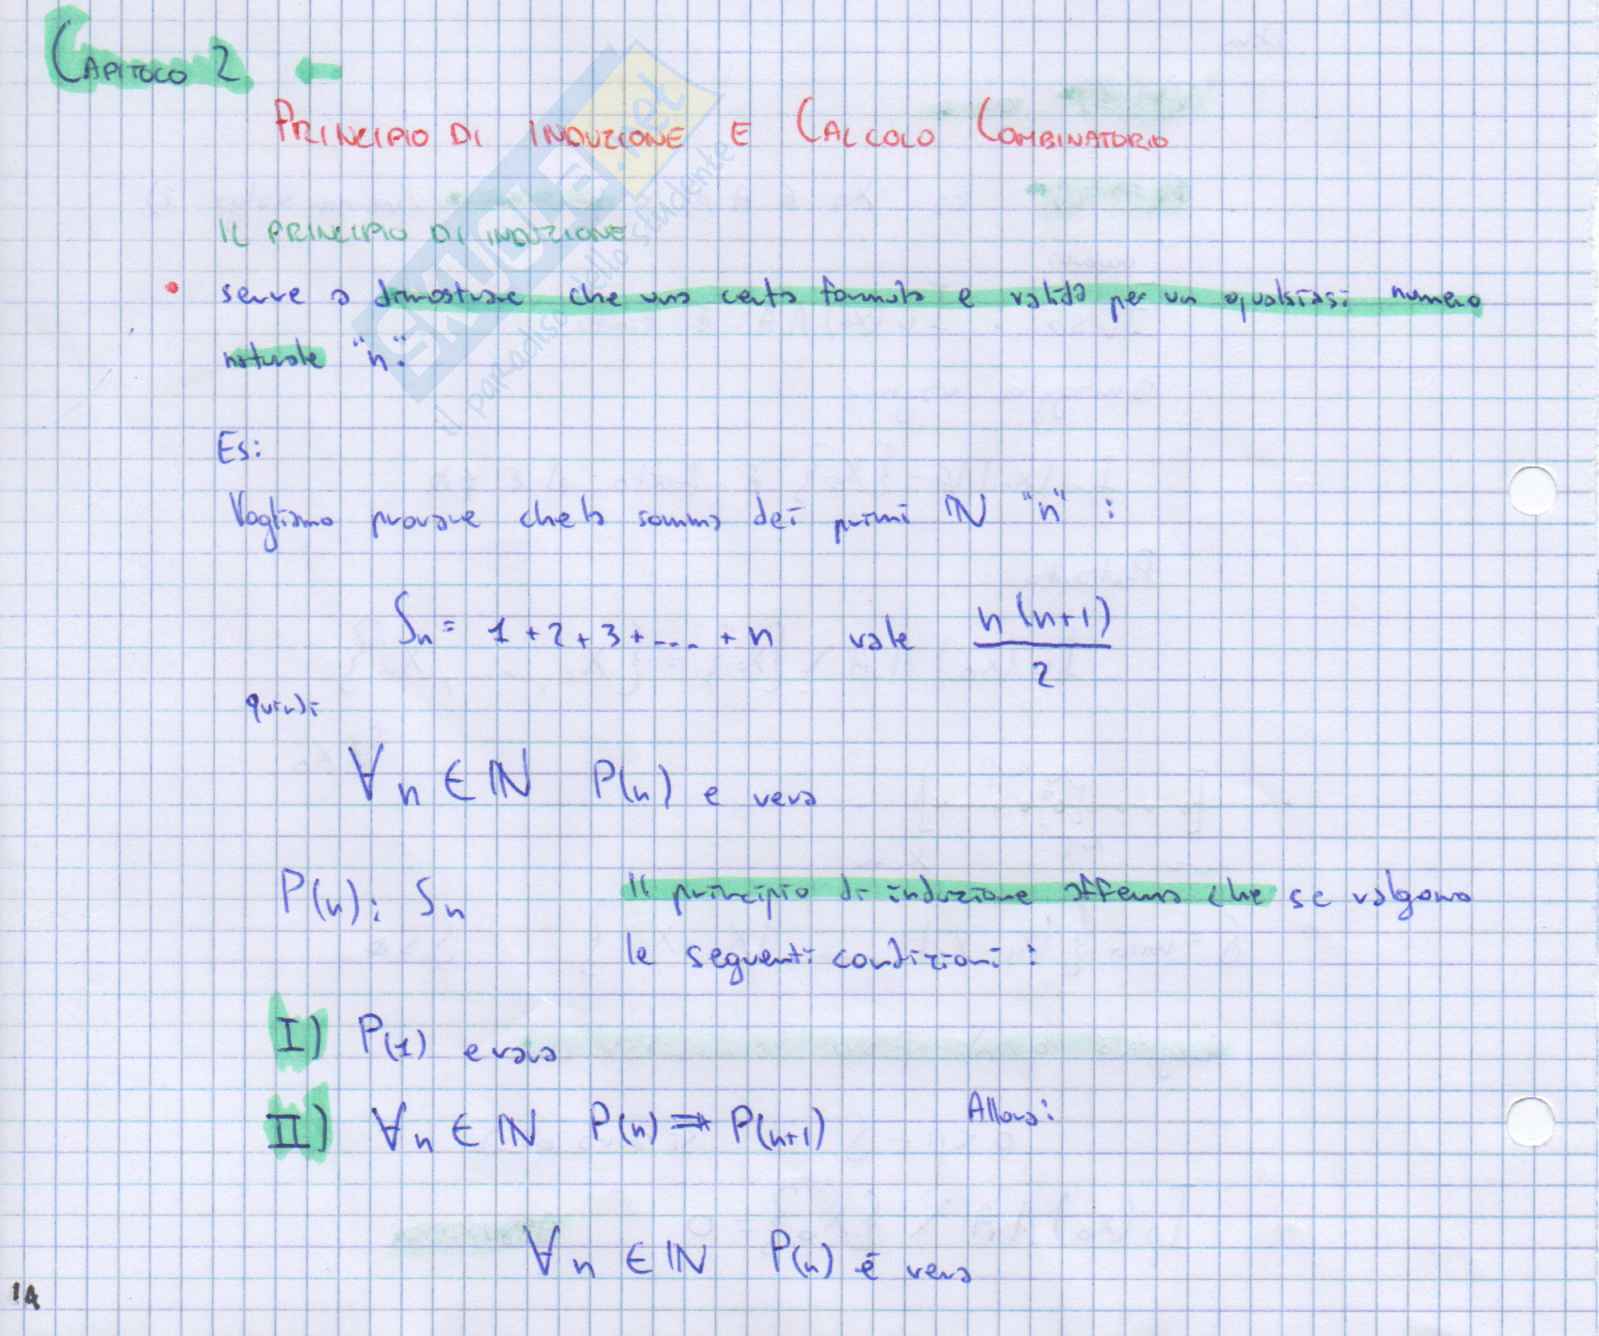 CAPITOLO 2 ←
PRINCIPIO DI INDUZIONE E CALCOLO COMBINATORIO
IL PRINCIPIO DI INDUZIONE
• serve a dimostrare che una certa formula e valida per un qualsiasi numero
naturale "n".
Es:
Vogliamo provare che la somma dei primi ℕ "n" :
Sn = 1+2+3+....+n vale n(n+1)/2
quindi
∀n ∈ ℕ P(n) e vera
P(n): Sn Il principio di induzione afferma che se valgono
le seguenti condizioni :
I) P(1) e vera
II) ∀n ∈ ℕ P(n) ⇒ P(n+1) Allora:
∀n ∈ ℕ P(n) è vera
14
SKUOLA.net
il paradiso dello studente